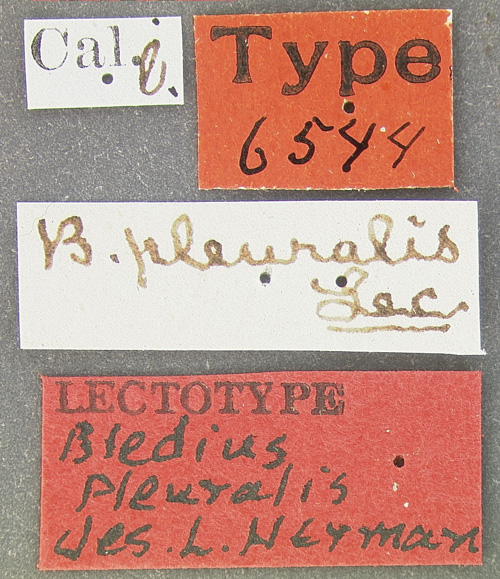 Cal. i.
Type
6544
B. pleuralis
Lec
LECTOTYPE
Bledius
pleuralis
des. L. Herman